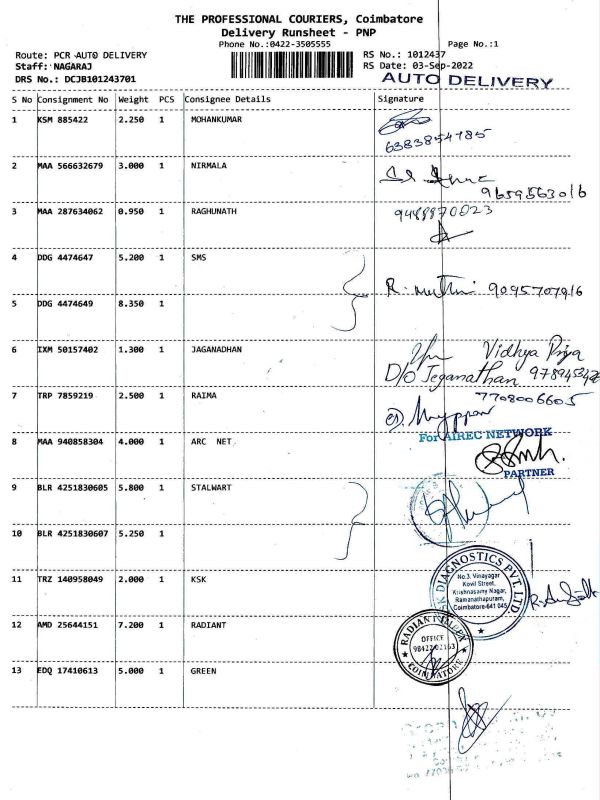 THE PROFESSIONAL COURIERS, Coimbatore
Delivery Runsheet - PNP
Phone No.:0422-3505555
Page No.:1
Route: PCR AUTO DELIVERY
RS No.: 1012437
Staff: NAGARAJ
RS Date: 03-Sep-2022
DRS No.: DCJB101243701
AUTO DELIVERY
S No Consignment No Weight PCS Consignee Details Signature
1 KSM 885422 2.250 1 MOHANKUMAR
6383854785
2 MAA 566632679 3.000 1 NIRMALA
9659563016
3 MAA 287634062 0.950 1 RAGHUNATH
9488970023
4 DDG 4474647 5.200 1 SMS
R. Muthu 9095707916
5 DDG 4474649 8.350 1
6 IXM 50157402 1.300 1 JAGANADHAN
Vidhya Priya
D/O Jeganathan
7 TRP 7859219 2.500 1 RAIMA
7708006605
For AIREC NETWORK
8 MAA 940858304 4.000 1 ARC NET
PARTNER
9 BLR 4251830605 5.800 1 STALWART
10 BLR 4251830607 5.250 1
11 TRZ 140958049 2.000 1 KSK
KSK DIAGNOSTICS PVT. LTD.
No.3, Vinayagar
Kovil Street,
Krishnasamy Nagar,
Ramanathapuram,
Coimbatore-641 045
12 AMD 25644151 7.200 1 RADIANT
OFFICE
COIMBATORE
13 EDQ 17410613 5.000 1 GREEN